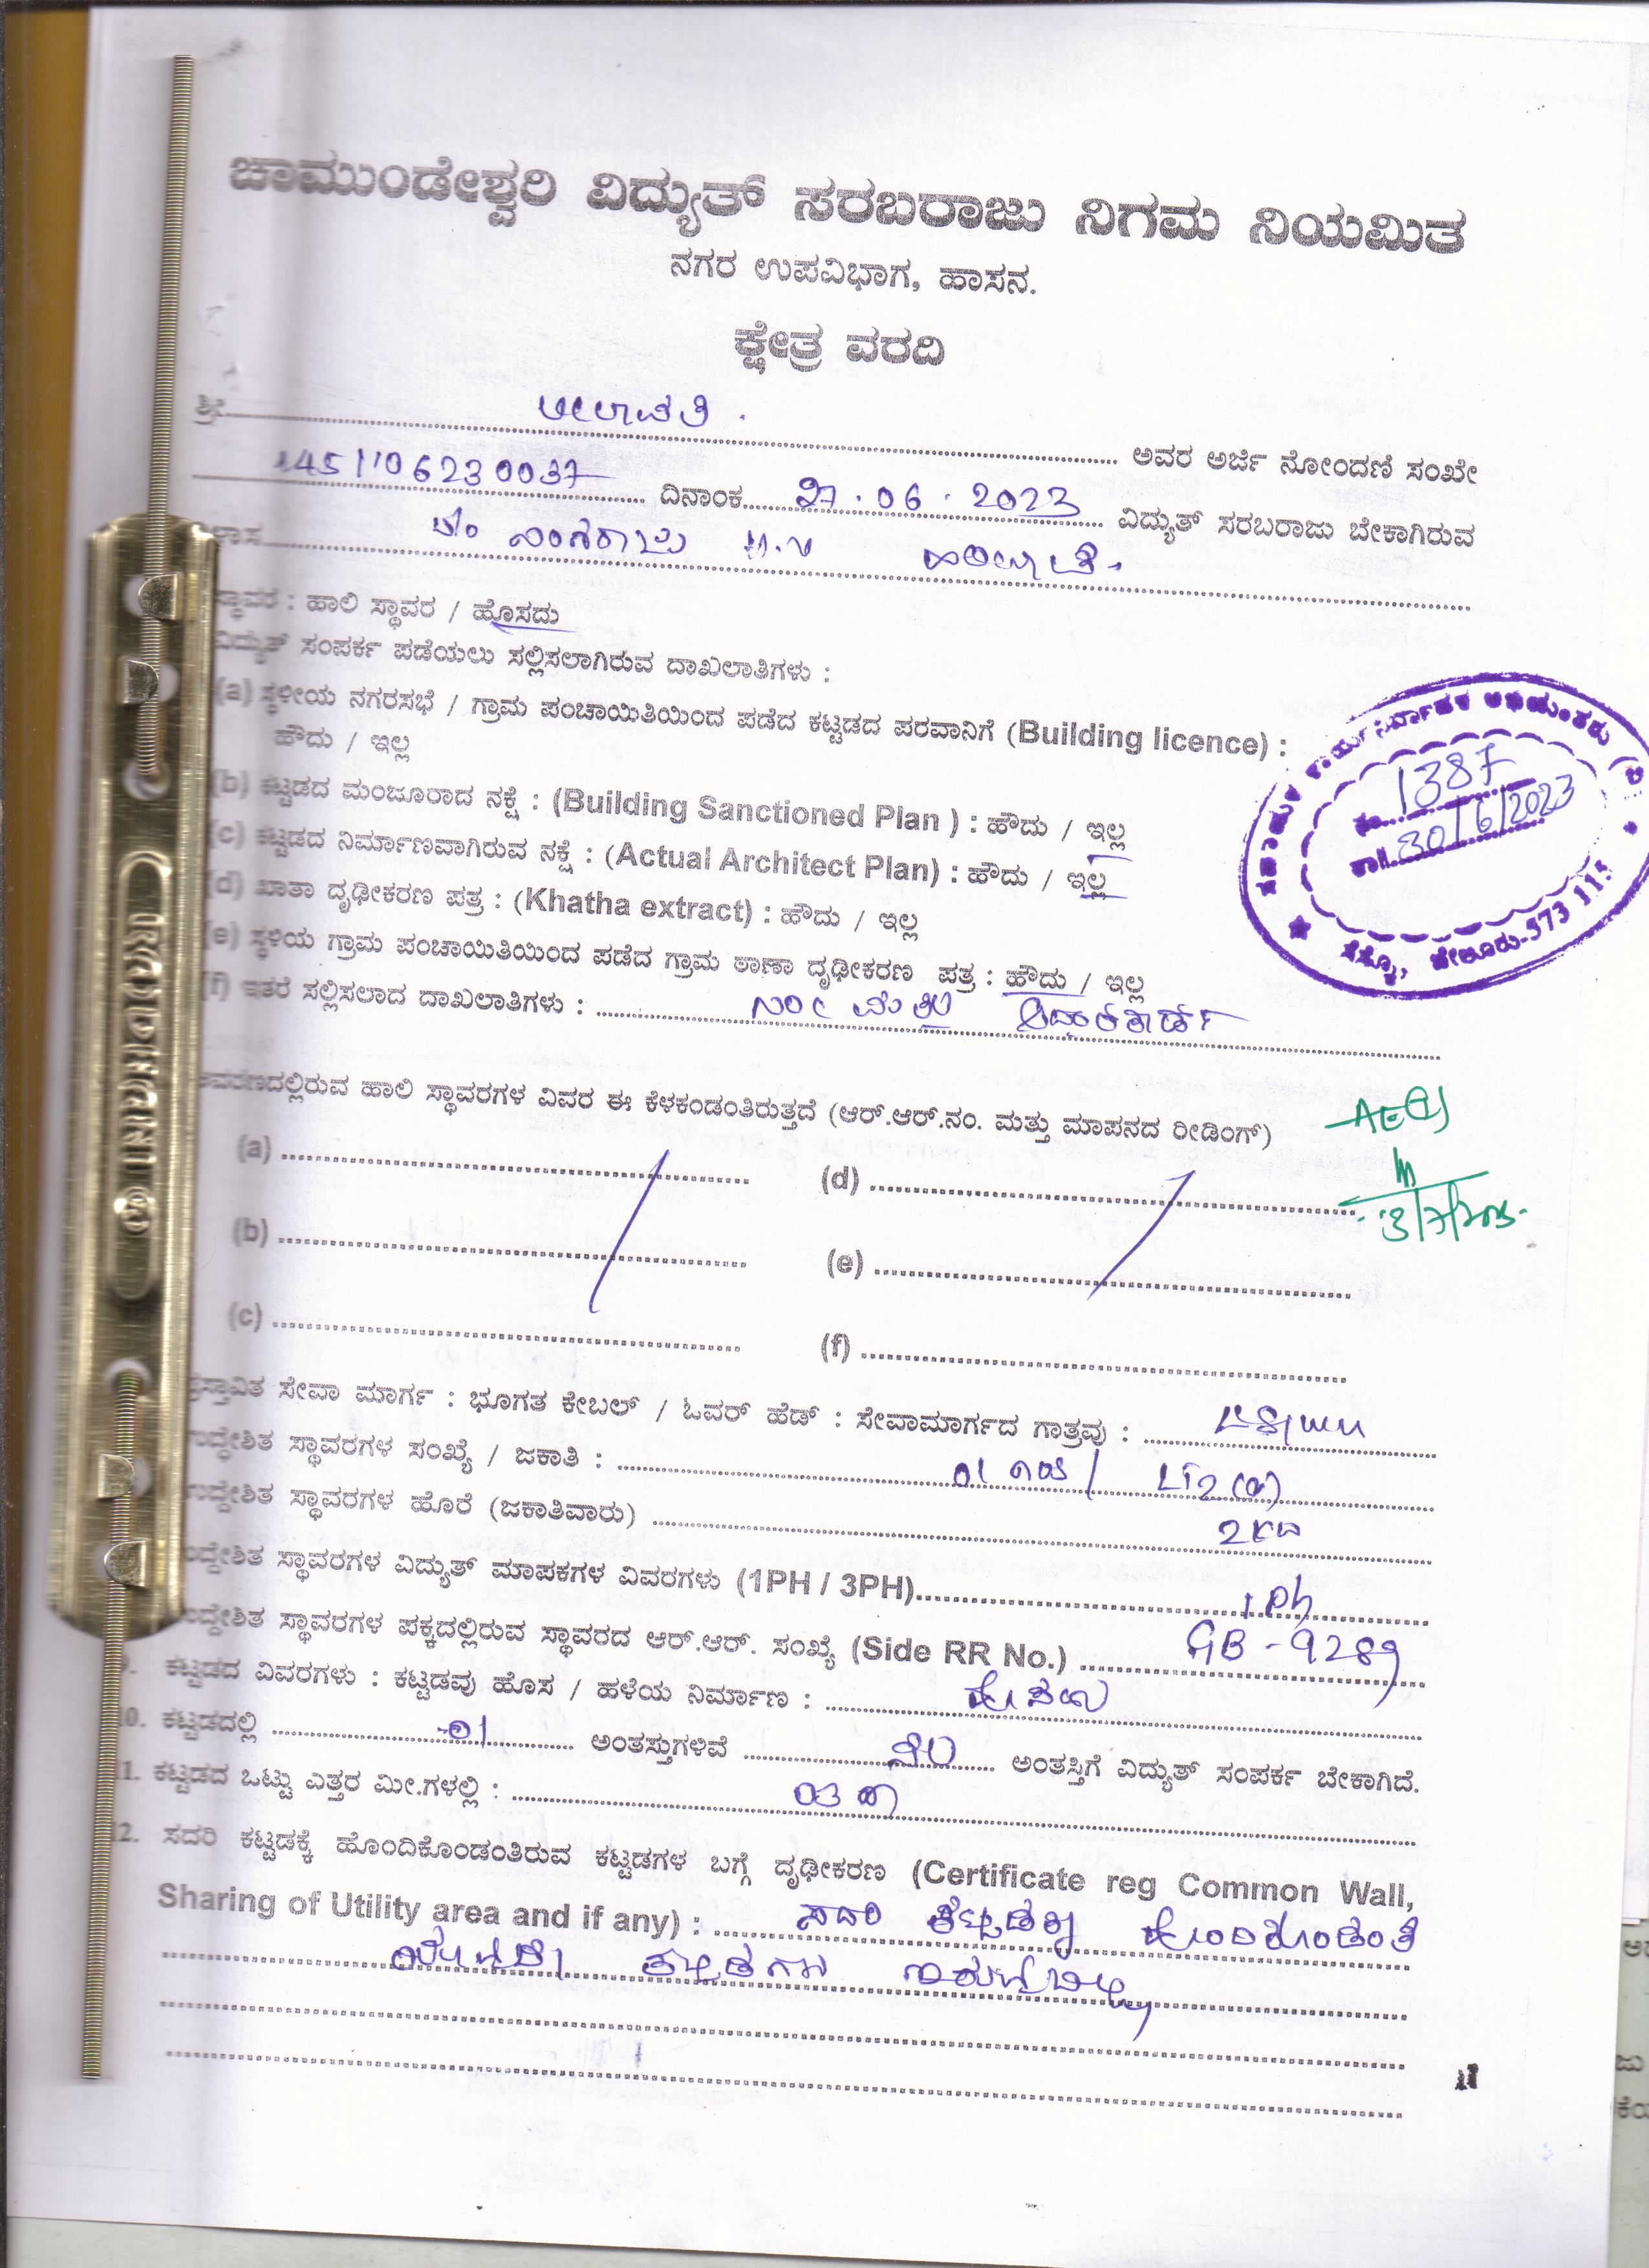 ಚಾಮುಂಡೇಶ್ವರಿ ವಿದ್ಯುತ್ ಸರಬರಾಜು ನಿಗಮ ನಿಯಮಿತ
ನಗರ ಉಪವಿಭಾಗ, ಹಾಸನ.
ಕ್ಷೇತ್ರ ವರದಿ
ಶ್ರೀ ಲೀಲಾವತಿ . ಅವರ ಅರ್ಜಿ ನೋಂದಣಿ ಸಂಖೇ
1451106230037 ದಿನಾಂಕ 27.06.2023 ವಿದ್ಯುತ್ ಸರಬರಾಜು ಬೇಕಾಗಿರುವ
ಸ್ಥಾವರ : ಹಾಲಿ ಸ್ಥಾವರ / ಹೊಸದು
ವಿದ್ಯುತ್ ಸಂಪರ್ಕ ಪಡೆಯಲು ಸಲ್ಲಿಸಲಾಗಿರುವ ದಾಖಲಾತಿಗಳು :
(a) ಸ್ಥಳೀಯ ನಗರಸಭೆ / ಗ್ರಾಮ ಪಂಚಾಯಿತಿಯಿಂದ ಪಡೆದ ಕಟ್ಟಡದ ಪರವಾನಿಗೆ (Building licence) :
ಹೌದು / ಇಲ್ಲ
(b) ಕಟ್ಟಡದ ಮಂಜೂರಾದ ನಕ್ಷೆ : (Building Sanctioned Plan ) : ಹೌದು / ಇಲ್ಲ
(c) ಕಟ್ಟಡದ ನಿರ್ಮಾಣವಾಗಿರುವ ನಕ್ಷೆ : (Actual Architect Plan) : ಹೌದು / ಇಲ್ಲ
(d) ಖಾತಾ ದೃಢೀಕರಣ ಪತ್ರ : (Khatha extract) : ಹೌದು / ಇಲ್ಲ
(e) ಸ್ಥಳಿಯ ಗ್ರಾಮ ಪಂಚಾಯಿತಿಯಿಂದ ಪಡೆದ ಗ್ರಾಮ ಠಾಣಾ ದೃಢೀಕರಣ ಪತ್ರ : ಹೌದು / ಇಲ್ಲ
(f) ಇತರೆ ಸಲ್ಲಿಸಲಾದ ದಾಖಲಾತಿಗಳು :
1387
30/6/2023
ಸೆಸ್ಕೊ, ಬೇಲೂರು-573 115
ಆವರಣದಲ್ಲಿರುವ ಹಾಲಿ ಸ್ಥಾವರಗಳ ವಿವರ ಈ ಕೆಳಕಂಡಂತಿರುತ್ತದೆ (ಆರ್.ಆರ್.ನಂ. ಮತ್ತು ಮಾಪನದ ರೀಡಿಂಗ್)
(a) (d)
(b) (e)
(c) (f)
ಪ್ರಸ್ತಾವಿತ ಸೇವಾ ಮಾರ್ಗ : ಭೂಗತ ಕೇಬಲ್ / ಓವರ್ ಹೆಡ್ : ಸೇವಾಮಾರ್ಗದ ಗಾತ್ರವು :
ಉದ್ದೇಶಿತ ಸ್ಥಾವರಗಳ ಸಂಖ್ಯೆ / ಜಕಾತಿ : LT2(a)
ಉದ್ದೇಶಿತ ಸ್ಥಾವರಗಳ ಹೊರೆ (ಜಕಾತಿವಾರು)
ಉದ್ದೇಶಿತ ಸ್ಥಾವರಗಳ ವಿದ್ಯುತ್ ಮಾಪಕಗಳ ವಿವರಗಳು (1PH / 3PH) 1 Ph
ಉದ್ದೇಶಿತ ಸ್ಥಾವರಗಳ ಪಕ್ಕದಲ್ಲಿರುವ ಸ್ಥಾವರದ ಆರ್.ಆರ್. ಸಂಖ್ಯೆ (Side RR No.) GB - 9289
9. ಕಟ್ಟಡದ ವಿವರಗಳು : ಕಟ್ಟಡವು ಹೊಸ / ಹಳೆಯ ನಿರ್ಮಾಣ : ಹೊಸದು
10. ಕಟ್ಟಡದಲ್ಲಿ 01 ಅಂತಸ್ತುಗಳಿವೆ ನೆಲ ಅಂತಸ್ತಿಗೆ ವಿದ್ಯುತ್ ಸಂಪರ್ಕ ಬೇಕಾಗಿದೆ.
11. ಕಟ್ಟಡದ ಒಟ್ಟು ಎತ್ತರ ಮೀ.ಗಳಲ್ಲಿ : 03 ಮೀ
12. ಸದರಿ ಕಟ್ಟಡಕ್ಕೆ ಹೊಂದಿಕೊಂಡಂತಿರುವ ಕಟ್ಟಡಗಳ ಬಗ್ಗೆ ದೃಢೀಕರಣ (Certificate reg Common Wall,
Sharing of Utility area and if any) : ಸದರಿ ಕಟ್ಟಡಕ್ಕೆ ಹೊಂದಿಕೊಂಡಂತೆ
ಯಾವುದೇ ಕಟ್ಟಡಗಳು ಇರುವುದಿಲ್ಲ